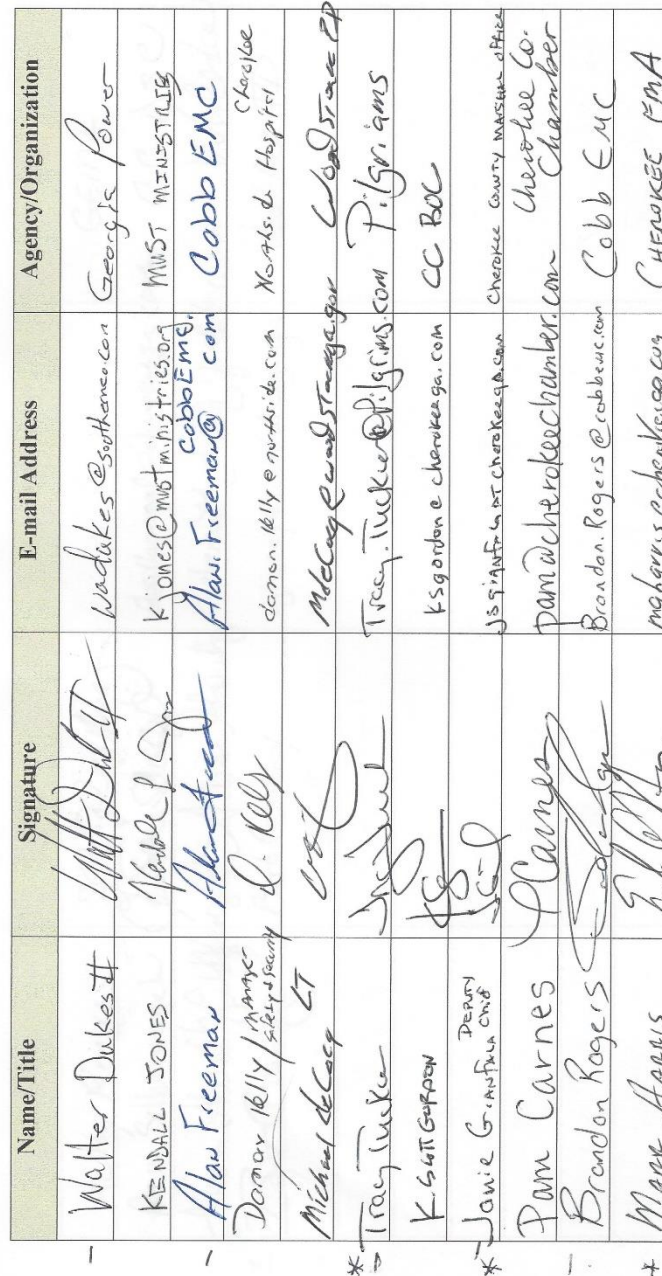 Name/Title Signature E-mail Address Agency/Organization
- Walter Dukes II wadukes@southernco.com Georgia Power
KENDALL JONES kjones@mustministries.org MUST MINISTRIES
- Alan Freeman Alan.Freeman@cobbEMC.com Cobb EMC
Damon Kelly/ MANAGER Safety & Security D. Kelly damon.kelly@northside.com Northside Hospital Cherokee
Michael McCarg LT Woodstock PD
* - Tracy Tucker Tracy.Tucker@Pilgrims.com Pilgrims
K. SCOTT GORDON KSG ksgordon@cherokeega.com CC BOC
* - Jamie GIANFALA DEPUTY Chief CHEROKEE COUNTY MARSHAL OFFICE
Pam Carnes PCarnes pam@cherokeechamber.com Cherokee Co. Chamber
- Brandon Rogers Brandon.Rogers@cobbemc.com Cobb EMC
* MARK HARRIS CHEROKEE EMA